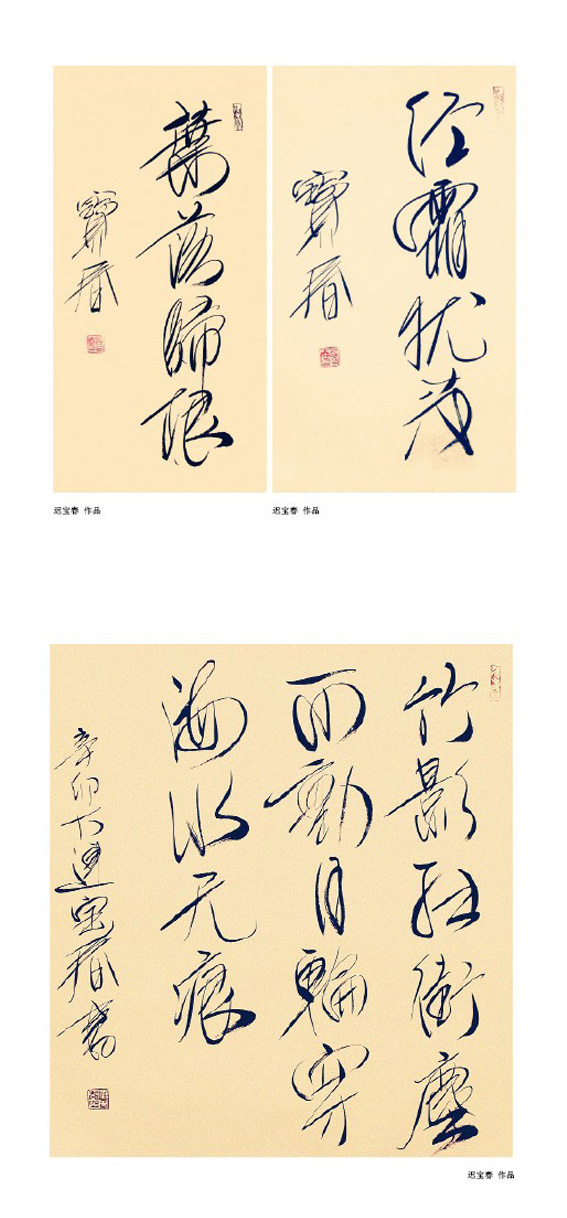 葉落歸根
寶春
经霜犹茂
寶春
迟宝春 作品
迟宝春 作品
竹影扫街塵
而動月輪穿
海水无痕
辛卯大連宝春書
迟宝春 作品